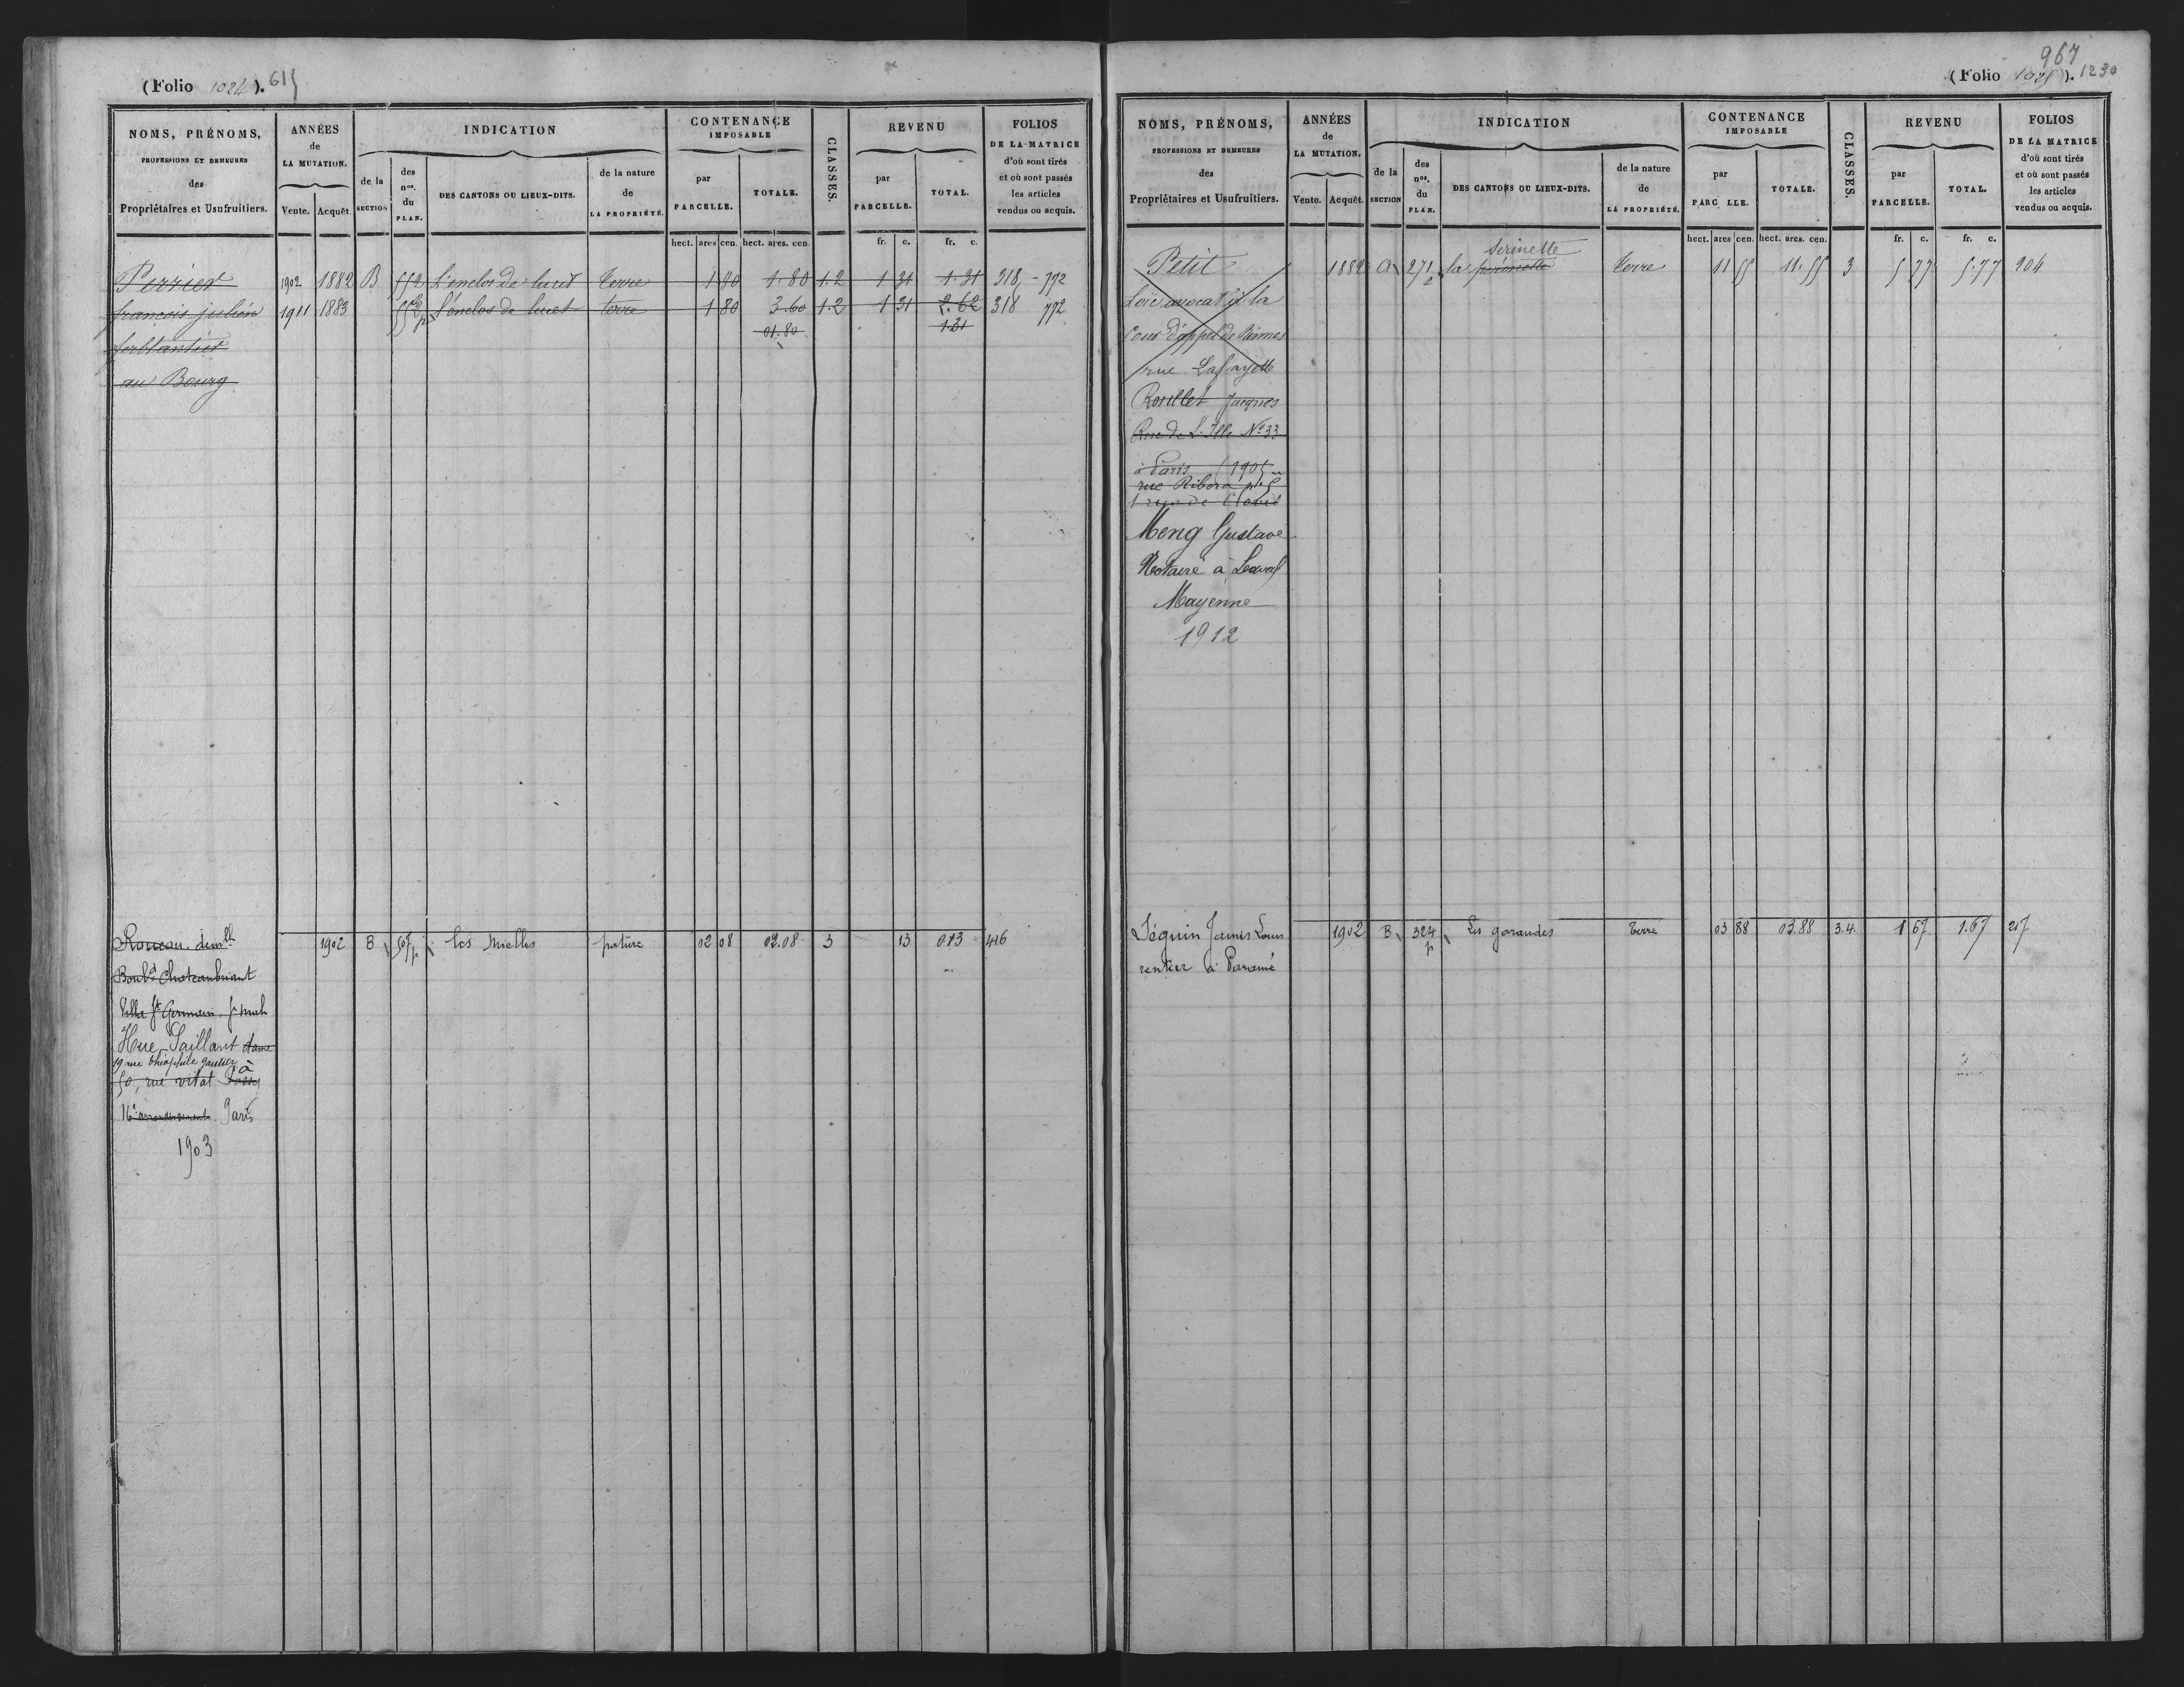 (Folio 1024). 615
NOMS, PRÉNOMS,
PROFESSIONS ET DEMEURES
des
Propriétaires et Usufruitiers.
ANNÉES
de
LA MUTATION.
Vente. Acquêt.
INDICATION
de la
SECTION
des
nos.
du
PLAN.
DES CANTONS OU LIEUX-DITS.
de la nature
de
LA PROPRIÉTÉ.
CONTENANCE
IMPOSABLE
par
PARCELLE.
TOTALE.
CLASSES.
REVENU
par
PARCELLE.
TOTAL.
FOLIOS
DE LA MATRICE
d'où sont tirés
et où sont passés
les articles
vendus ou acquis.
hect. ares cen. hect. ares. cen. fr. c. fr. c.
Perrier 1902 1882 B 552 L'enclos de lucet Terre 1 80 1.80 1.2 1 31 1.31 318 - 772
françois julien 1911 1883 552 p l'enclos de lucet terre 1 80 3.60 1.2 1 31 2.62 318 772
01.80 1.31
ferblantier
au Bourg
Rouxeau demlle 1902 B 507 p les Mielles pature 02 08 02.08 3 13 0.13 416
Bould Chateaubriant
Villa St Germain, St malo
Hue Saillant dame
19 rue théophile gautier
50, rue vital à Passy
16e arrondissement Paris
1903
967
(Folio 1025). 1230
NOMS, PRÉNOMS,
PROFESSIONS ET DEMEURES
des
Propriétaires et Usufruitiers.
ANNÉES
de
LA MUTATION.
Vente. Acquêt.
INDICATION
de la
SECTION
des
nos.
du
PLAN.
DES CANTONS OU LIEUX-DITS.
de la nature
de
LA PROPRIÉTÉ.
CONTENANCE
IMPOSABLE
par
PARC LLE.
TOTALE.
CLASSES.
REVENU
par
PARCELLE.
TOTAL.
FOLIOS
DE LA MATRICE
d'où sont tirés
et où sont passés
les articles
vendus ou acquis.
hect. ares cen. hect. ares. cen. fr. c. fr. c.
Serinette
Petit 1882 A 271 2 la Terre 11 55 11.55 3 5 77 5.77 904
Loïc avocat à la
Cour d'appel de Rennes
rue Lafayette
Rouillet Jacques
Rue de L'Ille No 33
à Paris 1905
rue Ribera no 5
Meng Gustave
Notaire à Laval
Mayenne
1912
Séguin James Louis 1902 B 324 p Les garandes Terre 03 88 03.88 3.4. 1 67 1.67 217
rentier à Paramé